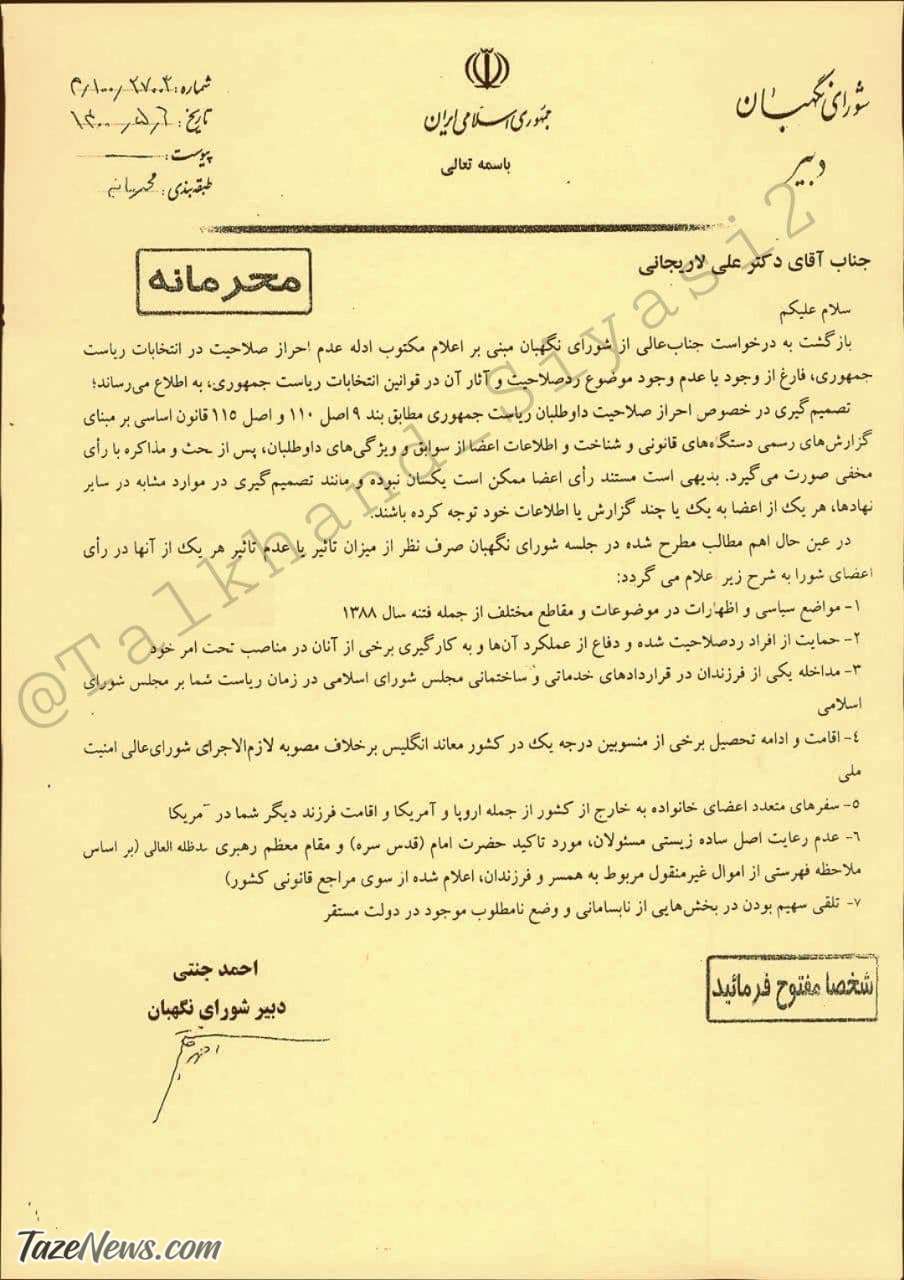 شورای نگهبان
دبیر
جمهوری اسلامی ایران
باسمه تعالی
شماره:
تاریخ:
پیوست:
طبقه‌بندی: محرمانه
محرمانه
جناب آقای دکتر علی لاریجانی
سلام علیکم
بازگشت به درخواست جناب‌عالی از شورای نگهبان مبنی بر اعلام مکتوب ادله عدم احراز صلاحیت در انتخابات ریاست
جمهوری، فارغ از وجود یا عدم وجود موضوع ردصلاحیت و آثار آن در قوانین انتخابات ریاست جمهوری، به اطلاع می‌رساند؛
تصمیم‌گیری در خصوص احراز صلاحیت داوطلبان ریاست جمهوری مطابق بند ۹ اصل ۱۱۰ و اصل ۱۱۵ قانون اساسی بر مبنای
گزارش‌های رسمی دستگاه‌های قانونی و شناخت و اطلاعات اعضا از سوابق و ویژگی‌های داوطلبان، پس از بحث و مذاکره با رأی
مخفی صورت می‌گیرد. بدیهی است مستند رأی اعضا ممکن است یکسان نبوده و مانند تصمیم‌گیری در موارد مشابه در سایر
نهادها، هر یک از اعضا به یک یا چند گزارش یا اطلاعات خود توجه کرده باشند.
در عین حال اهم مطالب مطرح شده در جلسه شورای نگهبان صرف نظر از میزان تاثیر یا عدم تاثیر هر یک از آنها در رأی
اعضای شورا به شرح زیر اعلام می گردد:
۱- مواضع سیاسی و اظهارات در موضوعات و مقاطع مختلف از جمله فتنه سال ۱۳۸۸
۲- حمایت از افراد ردصلاحیت شده و دفاع از عملکرد آن‌ها و به کارگیری برخی از آنان در مناصب تحت امر خود
۳- مداخله یکی از فرزندان در قراردادهای خدماتی و ساختمانی مجلس شورای اسلامی در زمان ریاست شما بر مجلس شورای
اسلامی
۴- اقامت و ادامه تحصیل برخی از منسوبین درجه یک در کشور معاند انگلیس برخلاف مصوبه لازم‌الاجرای شورای‌عالی امنیت
ملی
۵- سفرهای متعدد اعضای خانواده به خارج از کشور از جمله اروپا و آمریکا و اقامت فرزند دیگر شما در آمریکا
۶- عدم رعایت اصل ساده زیستی مسئولان، مورد تاکید حضرت امام (قدس سره) و مقام معظم رهبری مدظله العالی (بر اساس
ملاحظه فهرستی از اموال غیرمنقول مربوط به همسر و فرزندان، اعلام شده از سوی مراجع قانونی کشور)
۷- تلقی سهیم بودن در بخش‌هایی از نابسامانی و وضع نامطلوب موجود در دولت مستقر
احمد جنتی
دبیر شورای نگهبان
شخصا مفتوح فرمائید
@Talkhand_Siyasi2
TazeNews.com